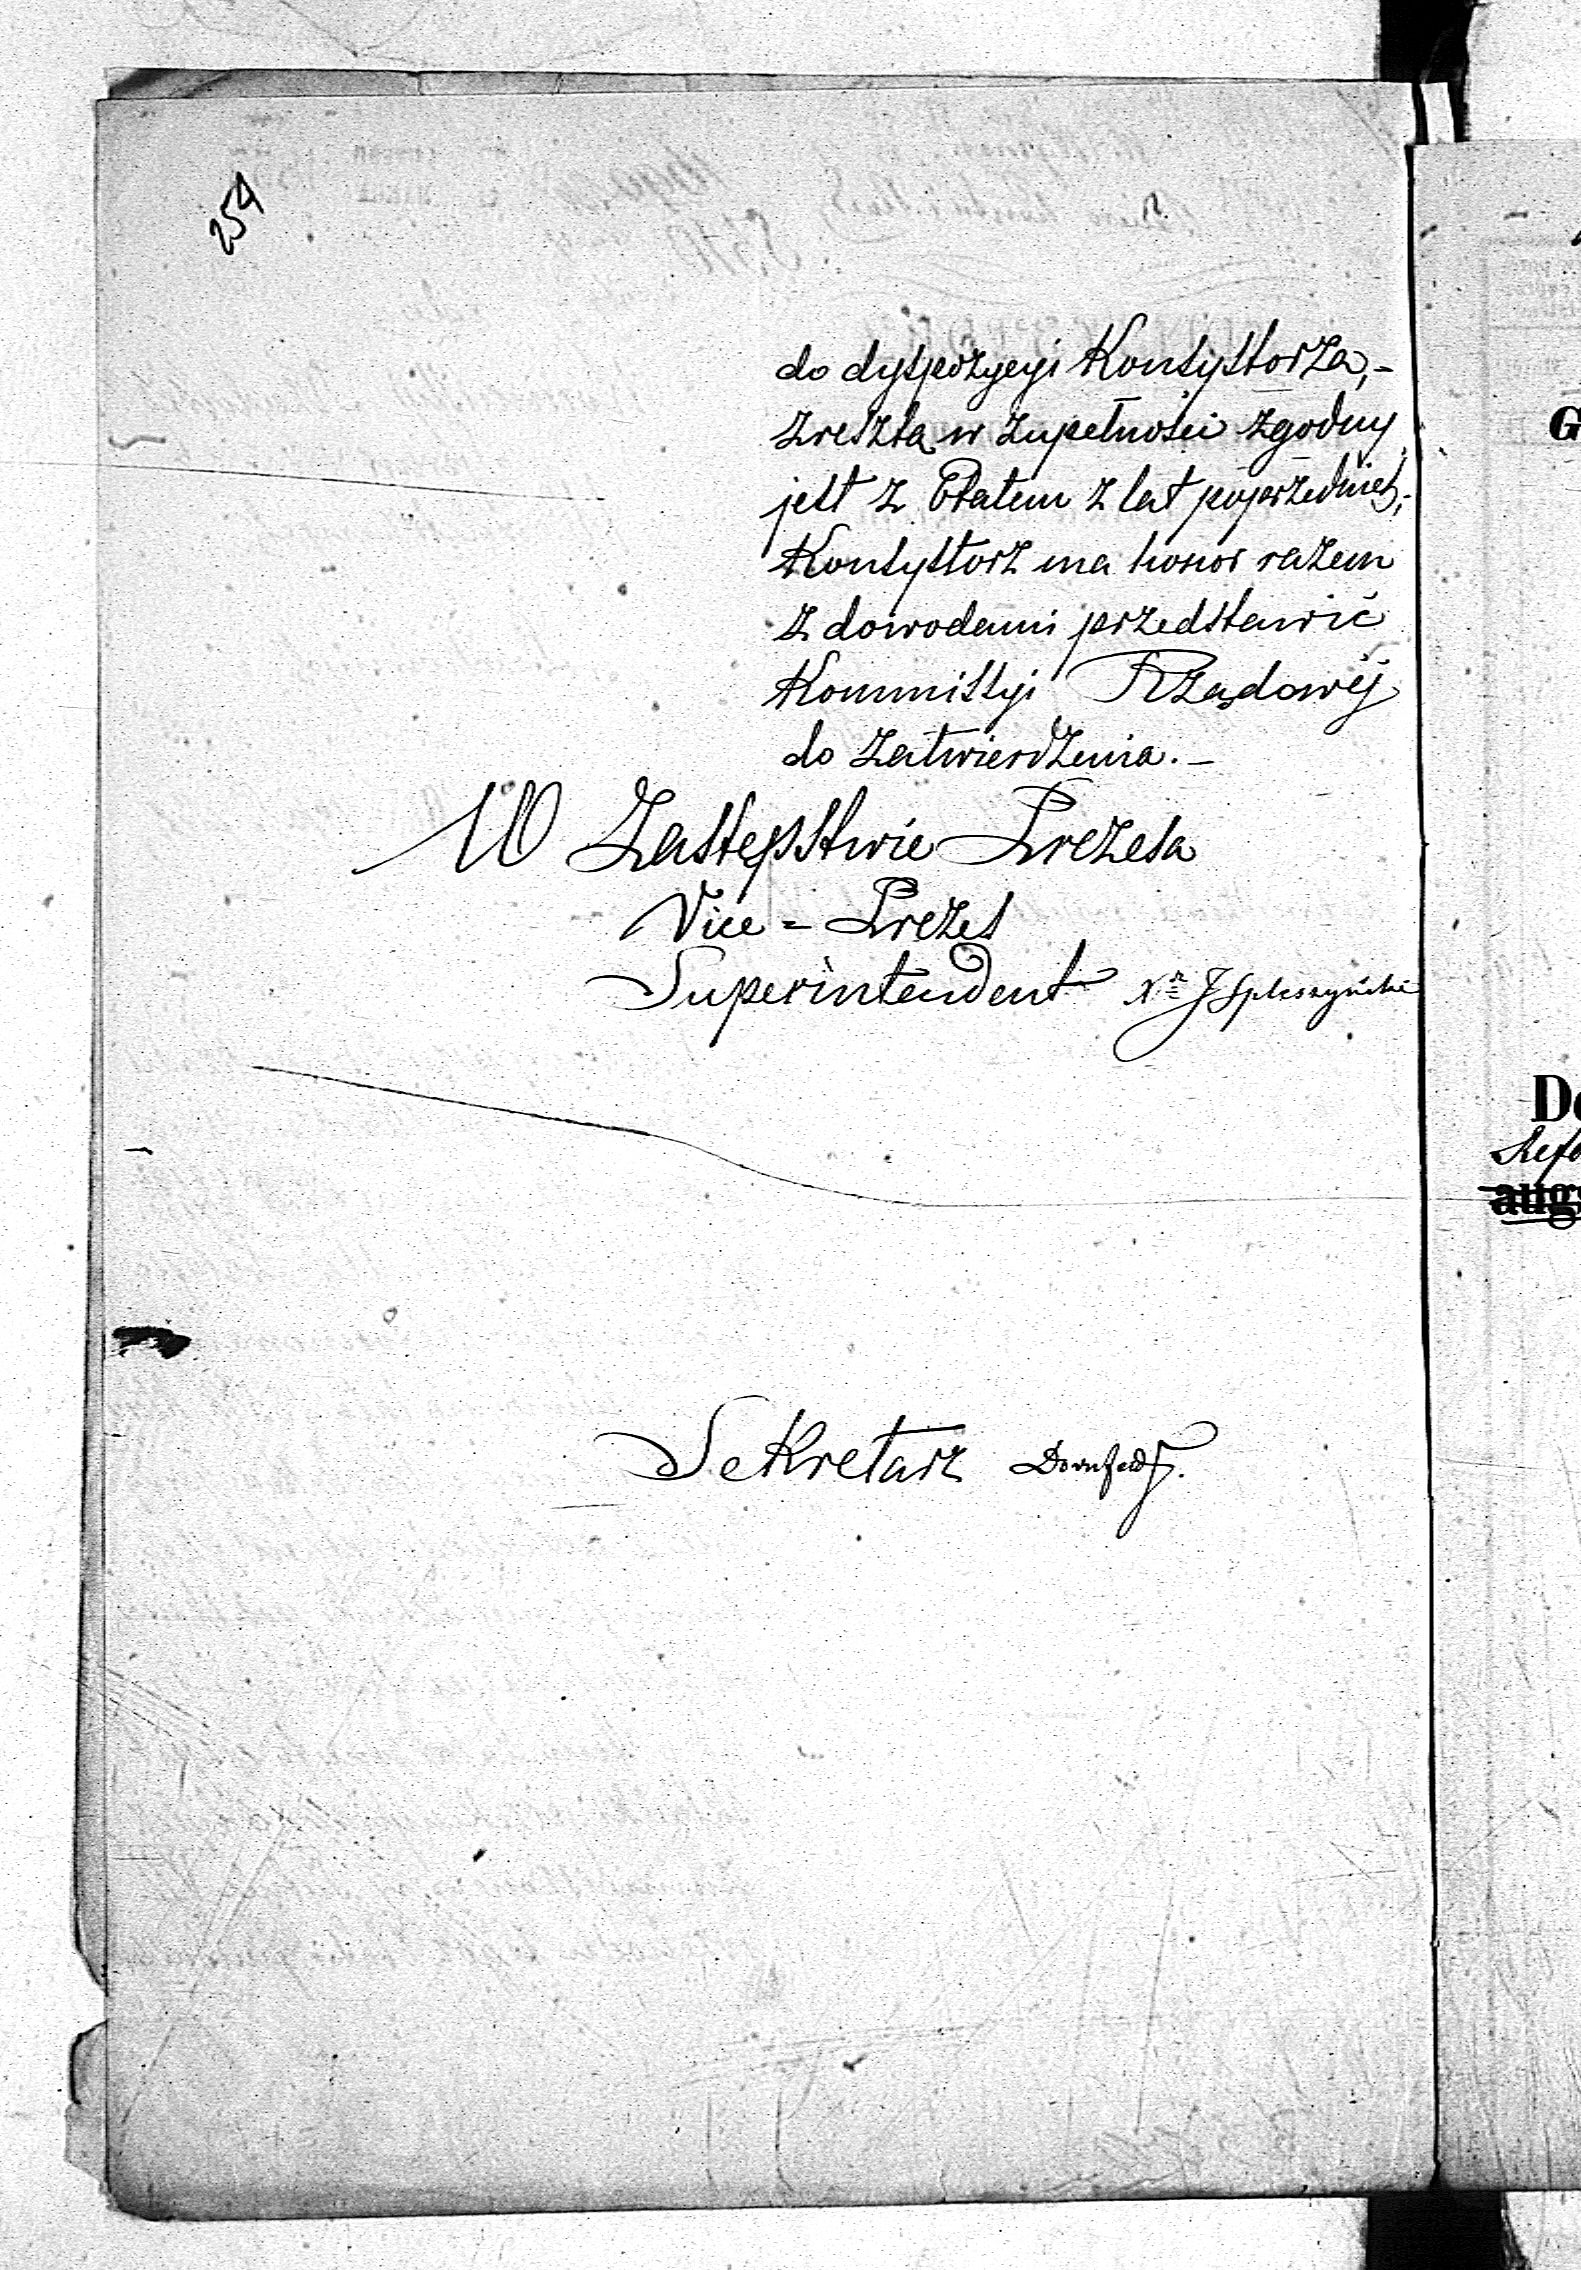 254
do dyspozycyi Konsystorza,-
zresztą w zupełności zgodny
jest z Etatem z lat poprzednich,-
Konsystorz ma honor razem
z dowodami przedstawić
Kommissyi Rządowéj
do zatwierdzenia.-
W Zastępstwie Prezesa
Vice = Prezes
Superintendent X J Spleszyński
Sekretarz Dornfeld
G
De
Refo
augs